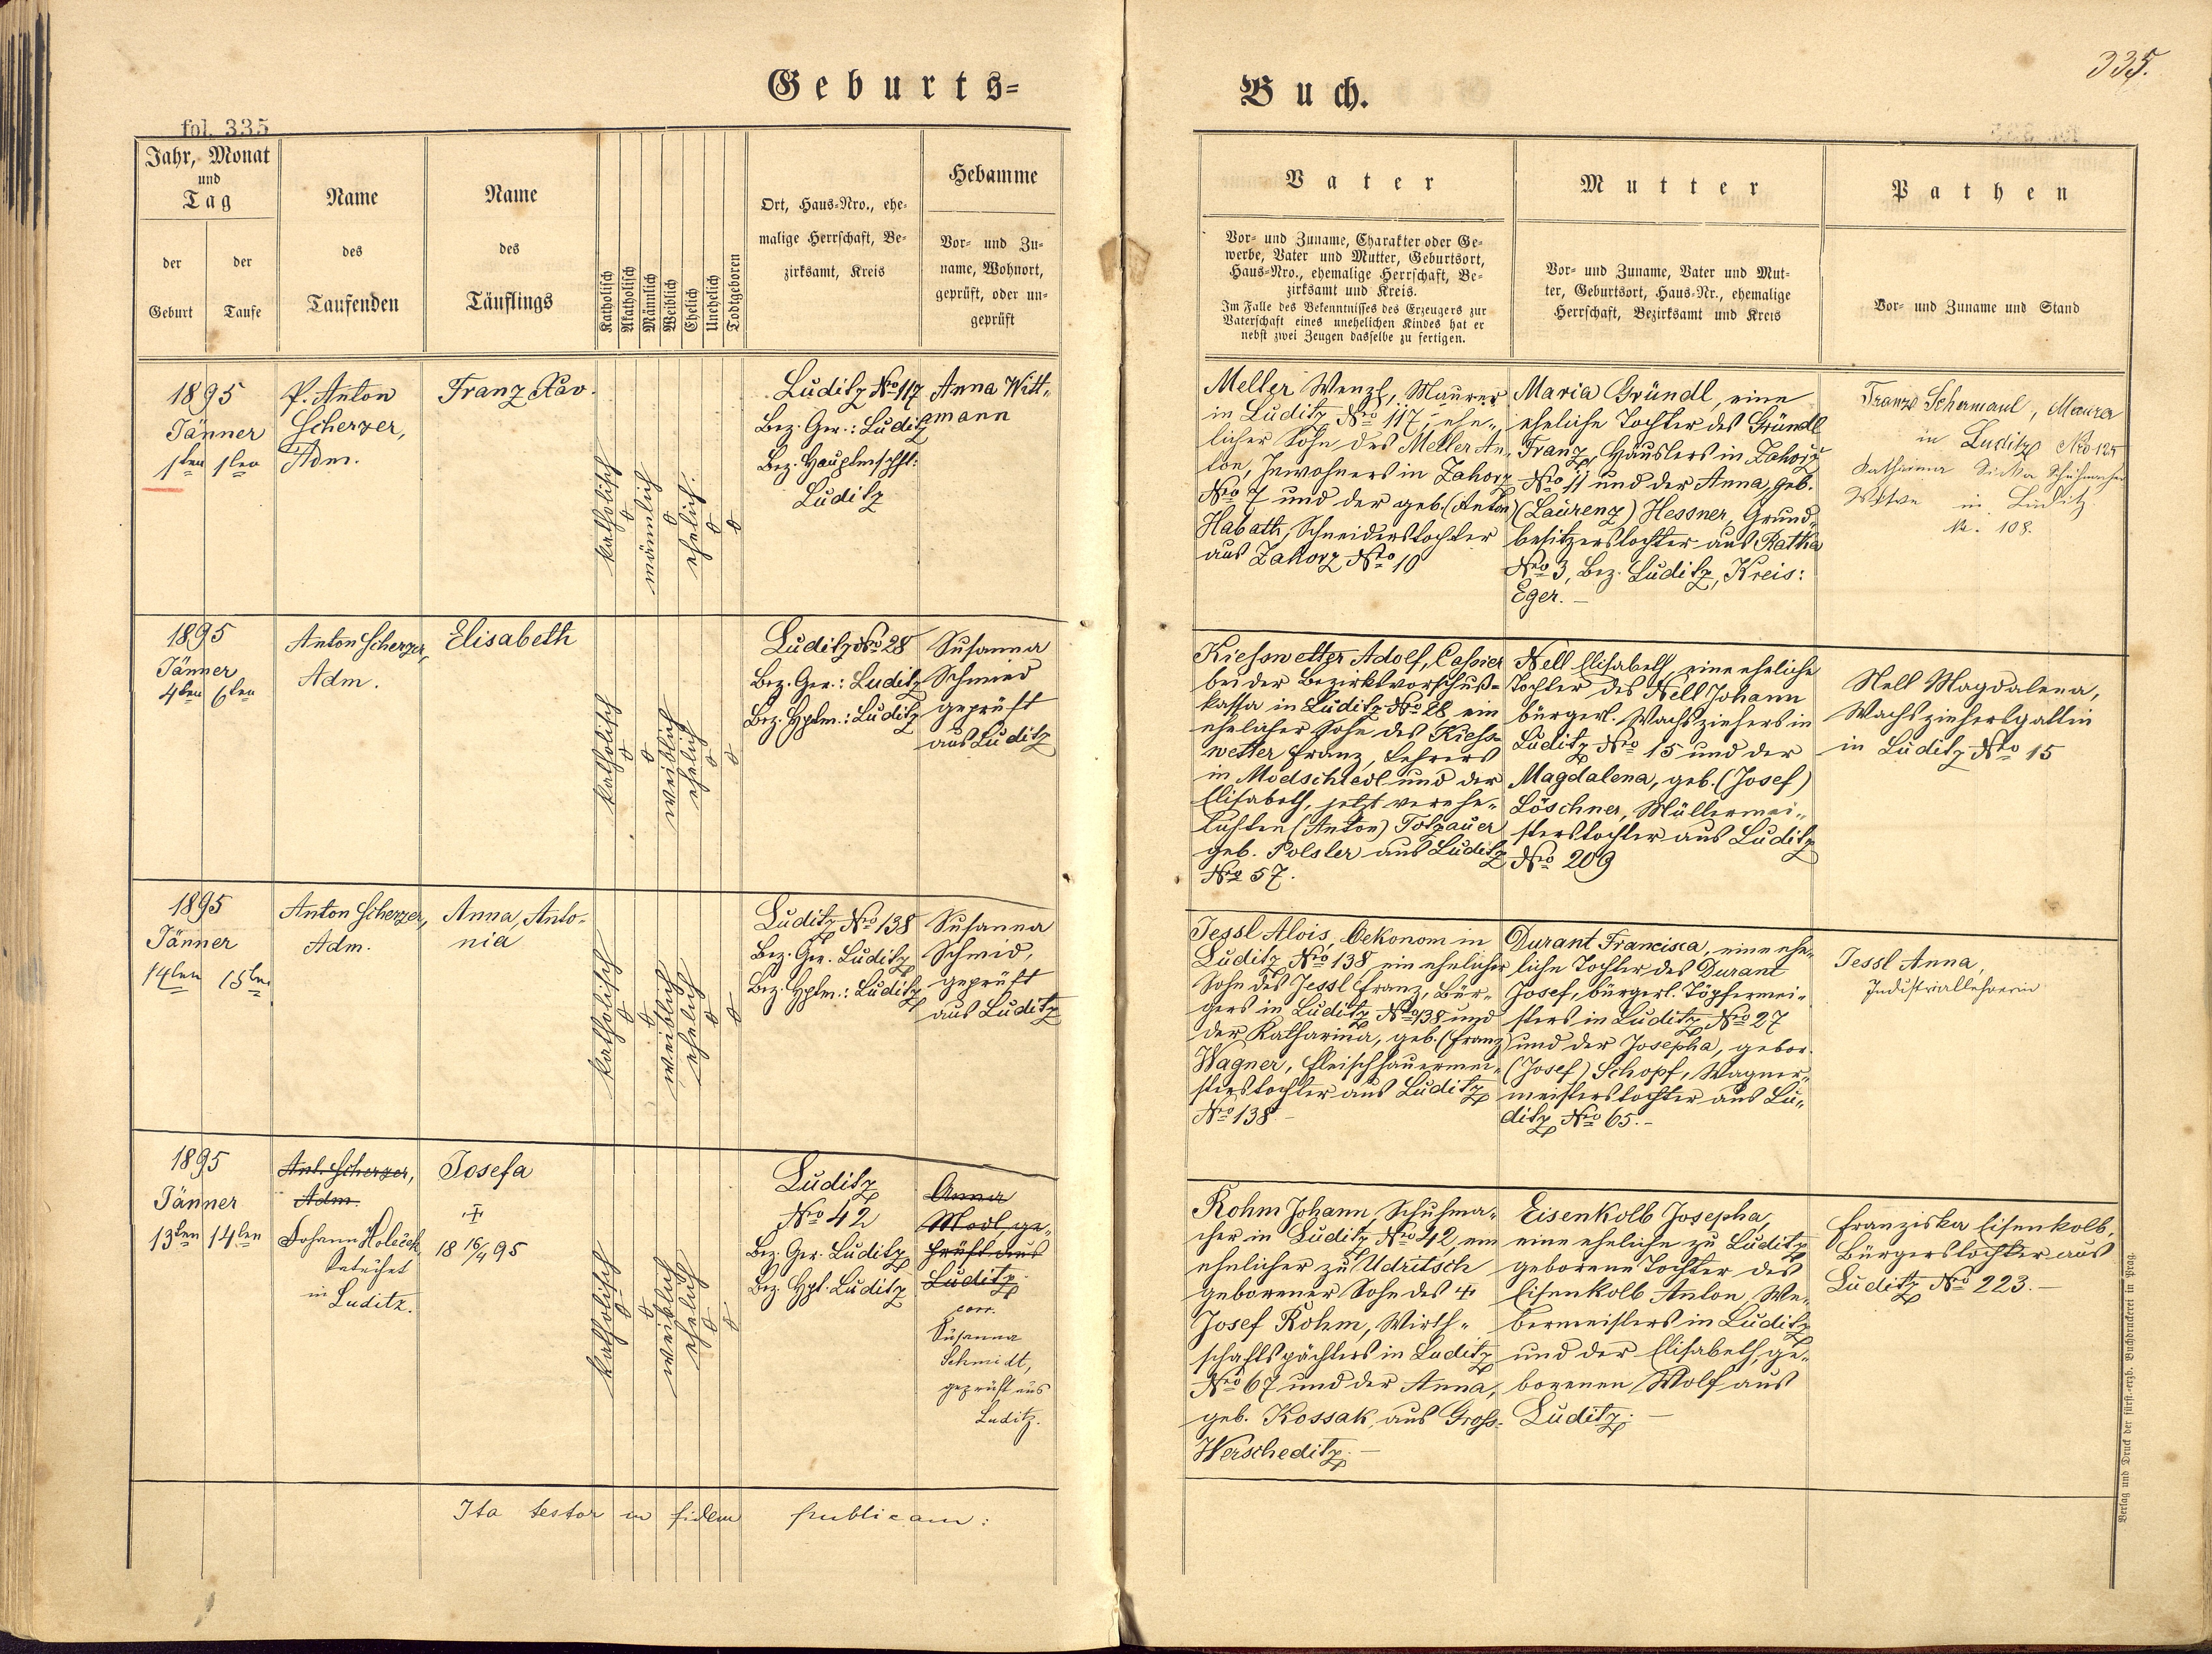 Geburts-
Buch.
335.
fol. 335
Jahr, Monat
und
Tag
der
Geburt
der
Taufe
Name
des
Taufenden
Name
des
Täuflings
Katholisch
Akatholisch
Männlich
Weiblich
Ehelich
Unehelich
Todtgeboren
Ort, Haus-Nro., ehe-
malige Herrschaft, Be-
zirksamt, Kreis
Hebamme
Vor- und Zu-
name, Wohnort,
geprüft, oder un-
geprüft
Vater
Vor- und Zuname, Charakter oder Ge-
werbe, Vater und Mutter, Geburtsort,
Haus-Nro., ehemalige Herrschaft, Be-
zirksamt und Kreis.
Im Falle des Bekenntnisses des Erzeugers zur
Vaterschaft eines unehelichen Kindes hat er
nebst zwei Zeugen dasselbe zu fertigen.
Mutter
Vor- und Zuname, Vater und Mut-
ter, Geburtsort, Haus-Nr., ehemalige
Herrschaft, Bezirksamt und Kreis
Pathen
Vor- und Zuname und Stand
1895
Jänner
1ten 1ten
P. Anton
Scherzer,
Adm.
Franz Xav.
katholisch
männlich
ehelich.
Luditz No 117
Bez. Ger.: Luditz
Bez. Hauptmschft:
Luditz
Anna Witt-
mann
Meller Wenzl, Maurer
in Luditz No 117, ehe-
licher Sohn des Meller An-
ton, Inwohners in Zahorz
No 7 und der geb. (Anton)
Habath, Schneiderstochter
aus Zahorz No 10
Maria Gründl, eine
eheliche Tochter des Gründl
Franz, Häuslers in Zahorz
No 11 und der Anna, geb.
(Laurenz) Hessner, Grund-
besitzerstochter aus Ratka
No 3, Bez. Luditz, Kreis:
Eger.-
Franz Schermaul, Maurer
in Luditz No 125
Katharina Schuhmacher
Witwe in Luditz
N. 108.
1895
Jänner
4ten 6ten
Anton Scherzer,
Adm.
Elisabeth
katholisch
weiblich
ehelich
Luditz No 28
Bez. Ger.: Luditz
Bez. Hptm.: Luditz
Susanna
Schmied
geprüft
aus Luditz
Kiesswetter Adolf, Cassier
bei der Bezirksvorschuß-
kassa in Luditz No 28, ein
ehelicher Sohn des Kiess-
wetter Franz, Lehrers
in Modschiedl und der
Elisabeth, jetzt verehe-
lichten (Anton) Totzauer
geb. Polsler aus Luditz
No 57.
Nell Elisabeth, eine eheliche
Tochter des Nell Johann
bürgerl. Wachsziehers in
Luditz No 15 und der
Magdalena, geb. (Josef)
Löschner, Müllermei-
sterstochter aus Luditz
No 209
Nell Magdalena,
Wachsziehersgattin
in Luditz No 15
1895
Jänner
14ten 15ten
Anton Scherzer,
Adm.
Anna, Anto-
nia
katholisch
weiblich
ehelich
Luditz No 138
Bez. Ger. Luditz
Bez. Hptm.: Luditz
Susanna
Schmid,
geprüft
aus Luditz
Jessl Alois, Oekonom in
Luditz No 138 ein ehelicher
Sohn des Jessl Franz, Bür-
gers in Luditz No 138 und
der Katharina, geb. (Franz)
Wagner, Fleischhauermei-
sterstochter aus Luditz
No 138-
Durant Francisca, eine ehe-
liche Tochter des Durant
Josef, bürgerl. Töpfermei-
sters in Luditz No 27
und der Josepha, gebor.
(Josef) Schopf, Wagner-
meisterstochter aus Lu-
ditz No 65.-
Jessl Anna,
Industriallehrerin
1895
Jänner
13ten 14ten
Ant. Scherzer,
Adm.
Johann Holeček
Katechet
in Luditz.
Josefa
†
18 16/4 95
katholisch
weiblich
ehelich
Luditz
No 42
Bez. Ger. Luditz
Bez. Hpt. Luditz
Anna
Modl, ge-
prüft aus
Luditz
corr.
Susanna
Schmidt,
geprüft aus
Luditz.
Rohm Johann, Schuhma-
cher in Luditz No 42, ein
ehelicher zu Udritsch
geborener Sohn des †
Josef Rohm, Wirth-
schaftspächters in Luditz
No 67 und der Anna,
geb. Kossak, aus Gross-
Werscheditz.-
Eisenkolb Josepha,
eine eheliche zu Luditz
geborene Tochter des
Eisenkolb Anton, We-
bermeisters in Luditz
und der Elisabeth, ge-
borenen Wolf aus
Luditz.-
Franziska Eisenkolb,
Bürgerstochter aus
Luditz No 223.-
Ita testor in fidem publicam:
Verlag und Druck der fürst.-erzb. Buchdruckerei in Prag.